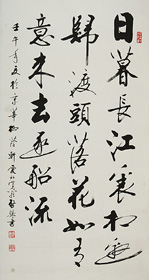 日暮長江裏相邀
歸渡頭落花如有
意来去逐船流
壬午年夏於京華